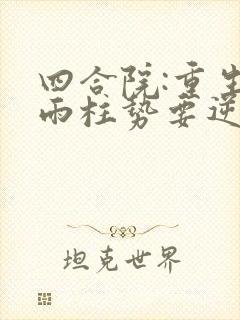 四合院:重生
雨柱势要逆
坦克世界